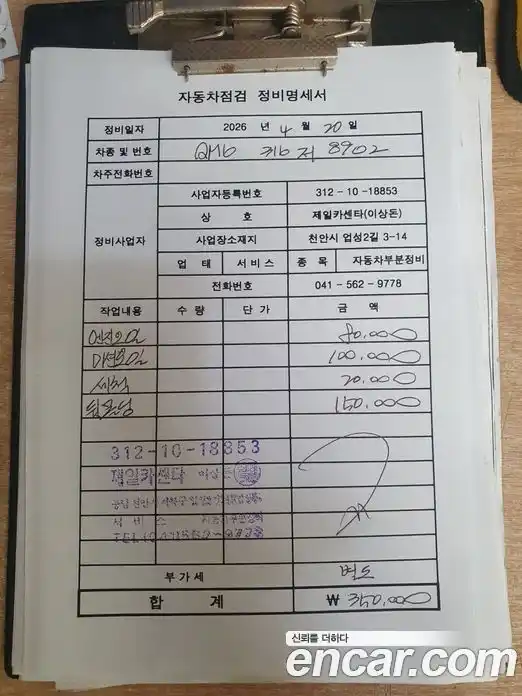 자동차점검 정비명세서
정비일자 2026 년 4 월 20 일
차종 및 번호 QM6 8902
차주전화번호
정비사업자
사업자등록번호 312 - 10 - 18853
상 호 제일카센타(이상돈)
사업장소재지 천안시 업성2길 3-14
업 태 서비스 종 목 자동차부분정비
전화번호 041 - 562 - 9778
작업내용 수 량 단 가 금 액
엔진오일 80.000
미션오일 100.000
세척 20.000
150.000
312-10-18853
제일카센타 이상돈
서 비 스
부가세 별도
합 계 ₩ 350.000
신뢰를 더하다
encar.com